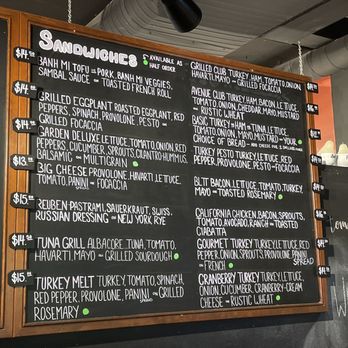 SANDWICHES
AVAILABLE AS
HALF ORDER
BANH MI TOFU OR PORK, BANH MI VEGGIES,
SAMBAL SAUCE - TOASTED FRENCH ROLL
GRILLED EGGPLANT ROASTED EGGPLANT, RED
PEPPERS, SPINACH, PROVOLONE, PESTO -
GRILLED FOCACCIA
GARDEN DELUXE LETTUCE, TOMATO, ONION, RED
PEPPERS, CUCUMBERS, SPROUTS, CILANTRO HUMMUS,
BALSAMIC - MULTIGRAIN
BIG CHEESE PROVOLONE, HAVARTI, LETTUCE,
TOMATO, PANINI - FOCACCIA
REUBEN PASTRAMI, SAUERKRAUT, SWISS,
RUSSIAN DRESSING - NEW YORK RYE
TUNA GRILL ALBACORE TUNA, TOMATO,
HAVARTI, MAYO - GRILLED SOURDOUGH
TURKEY MELT TURKEY, TOMATO, SPINACH,
RED PEPPER, PROVOLONE, PANINI SPREAD - GRILLED
ROSEMARY
$14.25
$14.25
$14.25
$13.25
$15.25
$14.25
$15.25
GRILLED CLUB TURKEY, HAM, TOMATO, ONION,
HAVARTI, MAYO - GRILLED FOCACCIA
AVENUE CLUB TURKEY, HAM, BACON, LETTUCE,
TOMATO, ONION, CHEDDAR, MAYO, MUSTARD
- RUSTIC WHEAT
BASIC TURKEY, HAM OR TUNA, LETTUCE,
TOMATO, ONION, MAYO, MUSTARD - YOUR
CHOICE OF BREAD -
TURKEY PESTO TURKEY, LETTUCE, RED
PEPPER, PROVOLONE, PESTO - FOCACCIA
BLTT BACON, LETTUCE, TOMATO, TURKEY,
MAYO - TOASTED ROSEMARY
CALIFORNIA CHICKEN, BACON, SPROUTS,
TOMATO, AVOCADO, RANCH - TOASTED
CIABATTA
GOURMET TURKEY TURKEY, LETTUCE, RED
PEPPER, ONION, SPROUTS, PROVOLONE, PANINI SPREAD
- FRENCH
CRANBERRY TURKEY TURKEY, LETTUCE,
ONION, CUCUMBER, CRANBERRY-CREAM
CHEESE - RUSTIC WHEAT